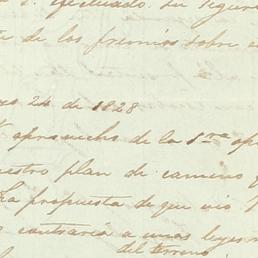 efectuado. La segura
de los premios sobre
24 de 1828.
aprovecho de la 1.ra
nuestro plan de caminos
La propuesta de que vió
contraria a unas leyes
del terreno